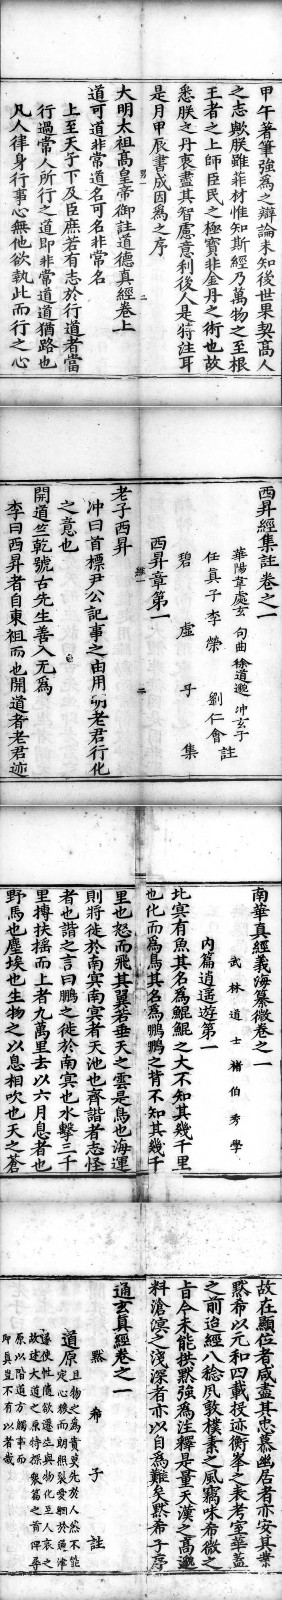 甲午著筆強為之辯論未知後世果契高人
之志歟朕雖菲材惟知斯經乃萬物之至根
王者之上師臣民之極寶非金丹之術也故
悉朕之丹衷盡其智慮意利後人是特注耳
是月甲辰書成因為之序
大明太祖高皇帝御註道德真經卷上
道可道非常道名可名非常名
上至天子下及臣庶若有志於行道者當
行過常人所行之道即非常道道猶路也
凡人律身行事心無他欲執此而行之心
西昇經集註卷之一
華陽韋處玄 句曲徐道邈 冲玄子
任真子李榮 劉仁會 註
碧虛子集
西昇章第一
老子西昇
冲曰首標尹公記事之由用明老君行化
之意也
開道竺乾號古先生善入无為
李曰西昇者自東徂而也開道者老君迹
南華真經義海纂微卷之一
武林道士褚伯秀學
內篇逍遥遊第一
北㝠有魚其名為鯤鯤之大不知其幾千里
也化而為鳥其名為鵬鵬之背不知其幾千
里也怒而飛其翼若垂天之雲是鳥也海運
則將徙於南㝠南㝠者天池也齊諧者志怪
者也諧之言曰鵬之徙於南㝠也水擊三千
里摶扶摇而上者九萬里去以六月息者也
野馬也塵埃也生物之以息相吹也天之蒼
故在顯位者咸盡其忠慕幽居者亦安其業
默希以元和四載投迹衡峯之表考室華蓋
之前迨經八稔夙敦樸素之風竊味希微之
旨今未能拱默強為注釋是量天漢之高邈
料滄溟之淺深者亦以自為難矣默希子序
通玄真經卷之一
默希子註
道原
且物之為貴莫先於人然不能
定心猿而朗照裂愛網於通津
遂使性隨欲遷生與物化至人哀之
故述大道之原特標衆篇之首俾尋
原以階道方觸事而
即真豈不有以者哉